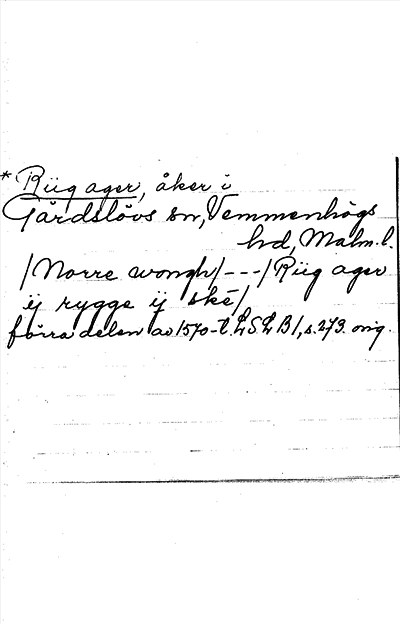 * Riig ager, åker i
Gärdslövs sn, Vemmenhögs
hd, Malm.l.
/Norre wongh/---/Riig ager
ij rygge ij ské/
förra delen av 1570-t. LSLB1, s.273. orig.